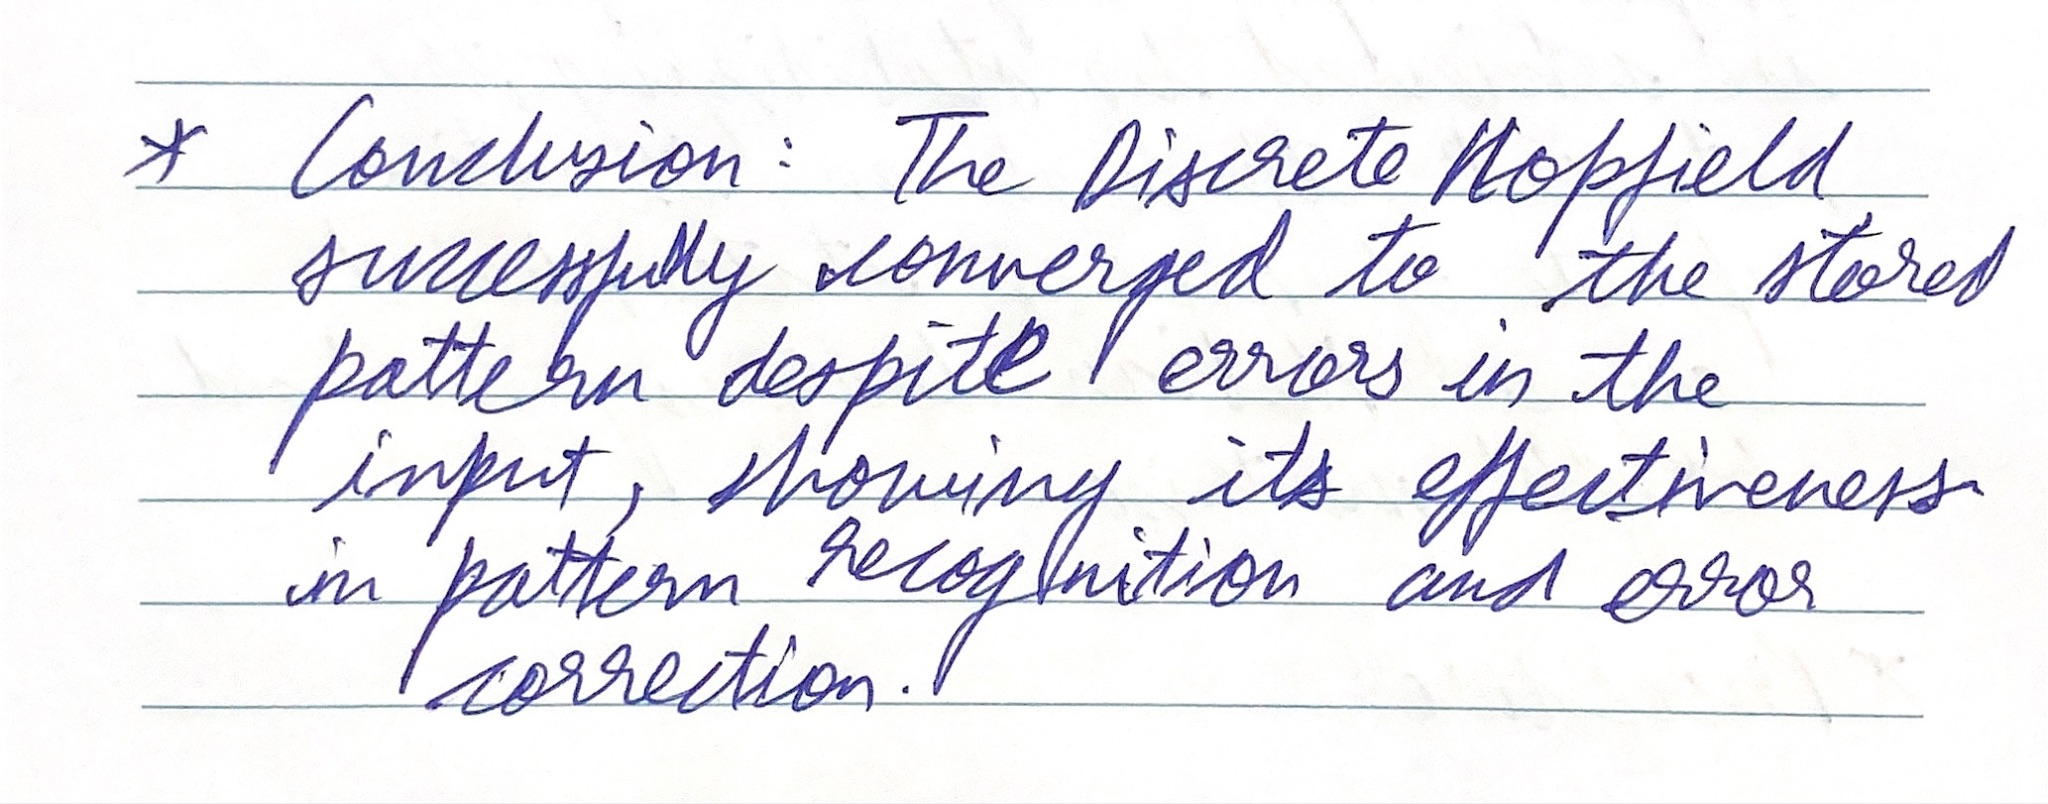 * Conclusion: The Discrete Hopfield
successfully converged to the stored
pattern despite errors in the
input, showing its effectiveness
in pattern recognition and error
correction.